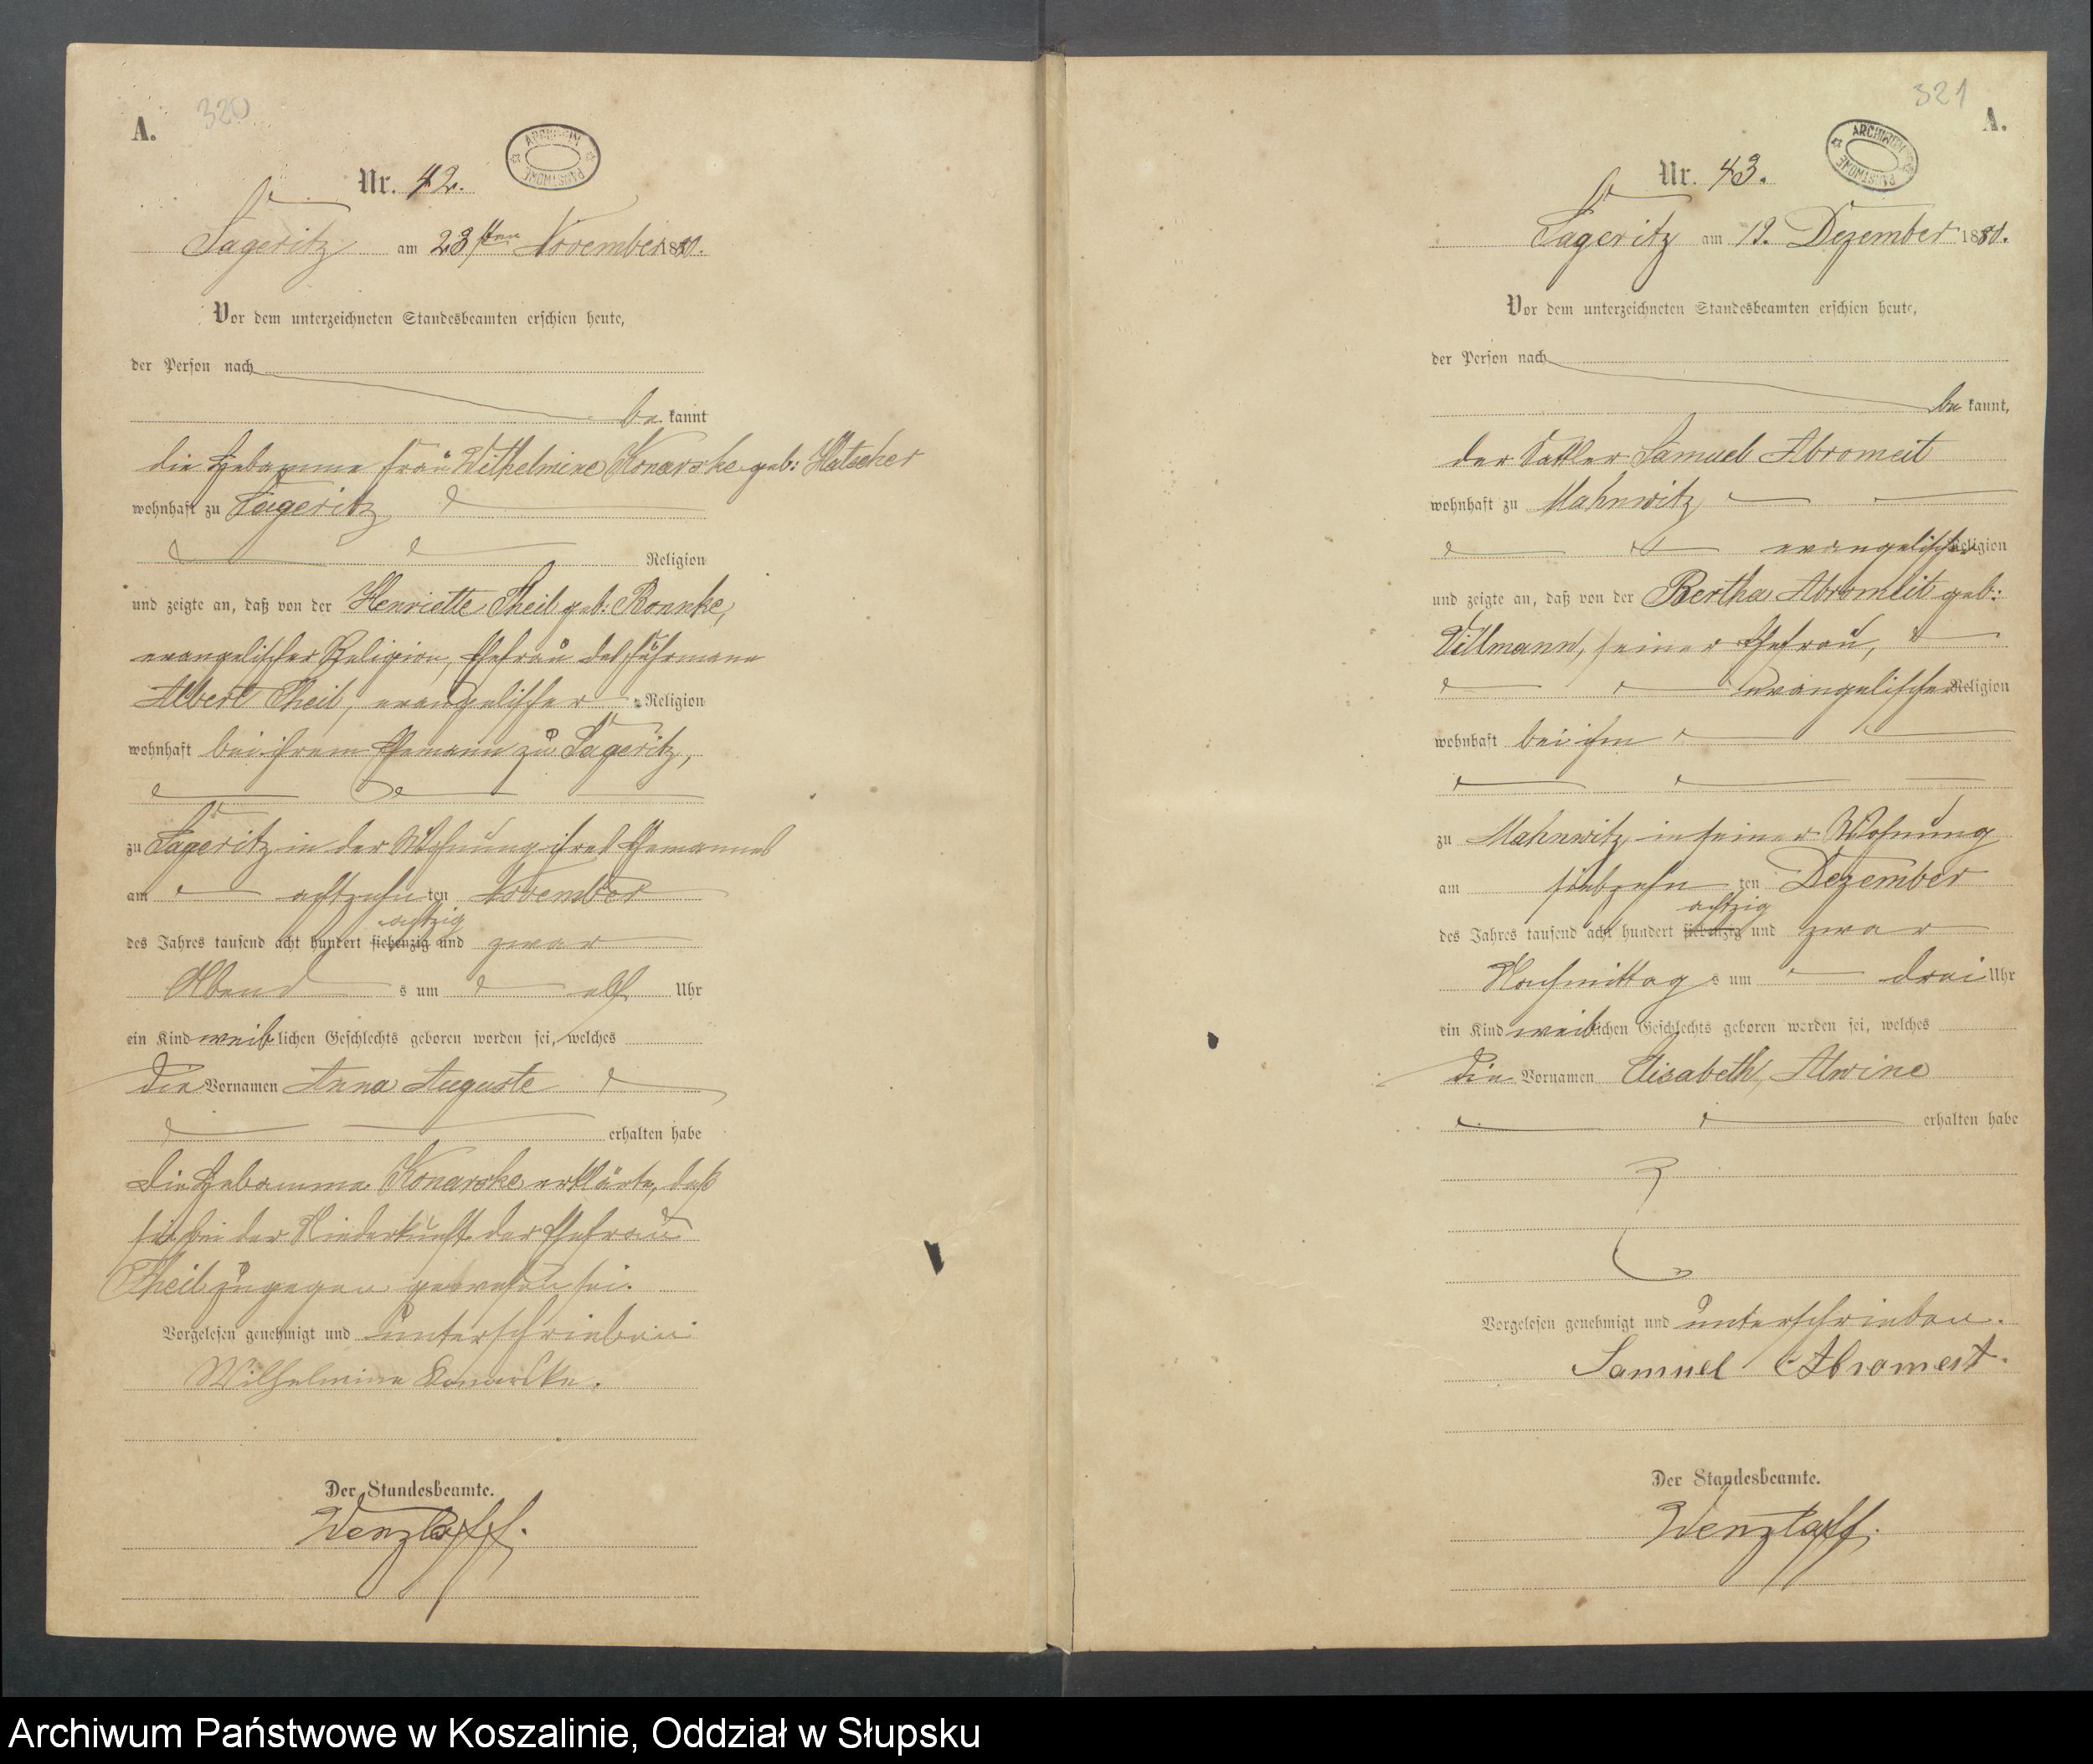 320
A.
ARCHIWUM PAŃSTWOWE
Nr. 42.
Sageritz am 23sten November 1880.
Vor dem unterzeichneten Standesbeamten erschien heute,
der Person nach
be kannt
die Hebamme Frau Wilhelmine Konarske geb: Hatscher
wohnhaft zu Sageritz
Religion
und zeigte an, daß von der Henriette Theil geb: Ronnke,
evangelischer Religion, Ehefrau des Fuhrmann
Albert Theil, evangelischer Religion
wohnhaft bei ihrem Ehemann zu Sageritz,
zu Sageritz in der Wohnung ihres Ehemannes
am achtzehn ten November
achtzig
des Jahres tausend acht hundert siebenzig und zwar
Abend s um elf Uhr
ein Kind weib lichen Geschlechts geboren worden sei, welches
die Vornamen Anna Auguste
erhalten habe
Die Hebamme Konarske erklärte, daß
sie bei der Niederkunft der Ehefrau
Theil zugegen gewesen sei.
Vorgelesen genehmigt und unterschrieben
Wilhelmine Konarske.
Der Standesbeamte.
Wenzlaff.
321
A.
ARCHIWUM PAŃSTWOWE
Nr. 43.
Sageritz am 19. Dezember 1880.
Vor dem unterzeichneten Standesbeamten erschien heute,
der Person nach
be kannt,
der Sattler Samuel Abromeit
wohnhaft zu Mahnwitz
evangelischer Religion
und zeigte an, daß von der Bertha Abromeit geb:
Villmann, seiner Ehefrau,
evangelischer Religion
wohnhaft bei ihm
zu Mahnwitz in seiner Wohnung
am siebzehn ten Dezember
achtzig
des Jahres tausend acht hundert siebenzig und zwar
Nachmittag s um drei Uhr
ein Kind weib lichen Geschlechts geboren worden sei, welches
die Vornamen Elisabeth, Alwine
erhalten habe
Vorgelesen genehmigt und unterschrieben.
Samuel Abromeit.
Der Standesbeamte.
Wenzlaff.
Archiwum Państwowe w Koszalinie, Oddział w Słupsku